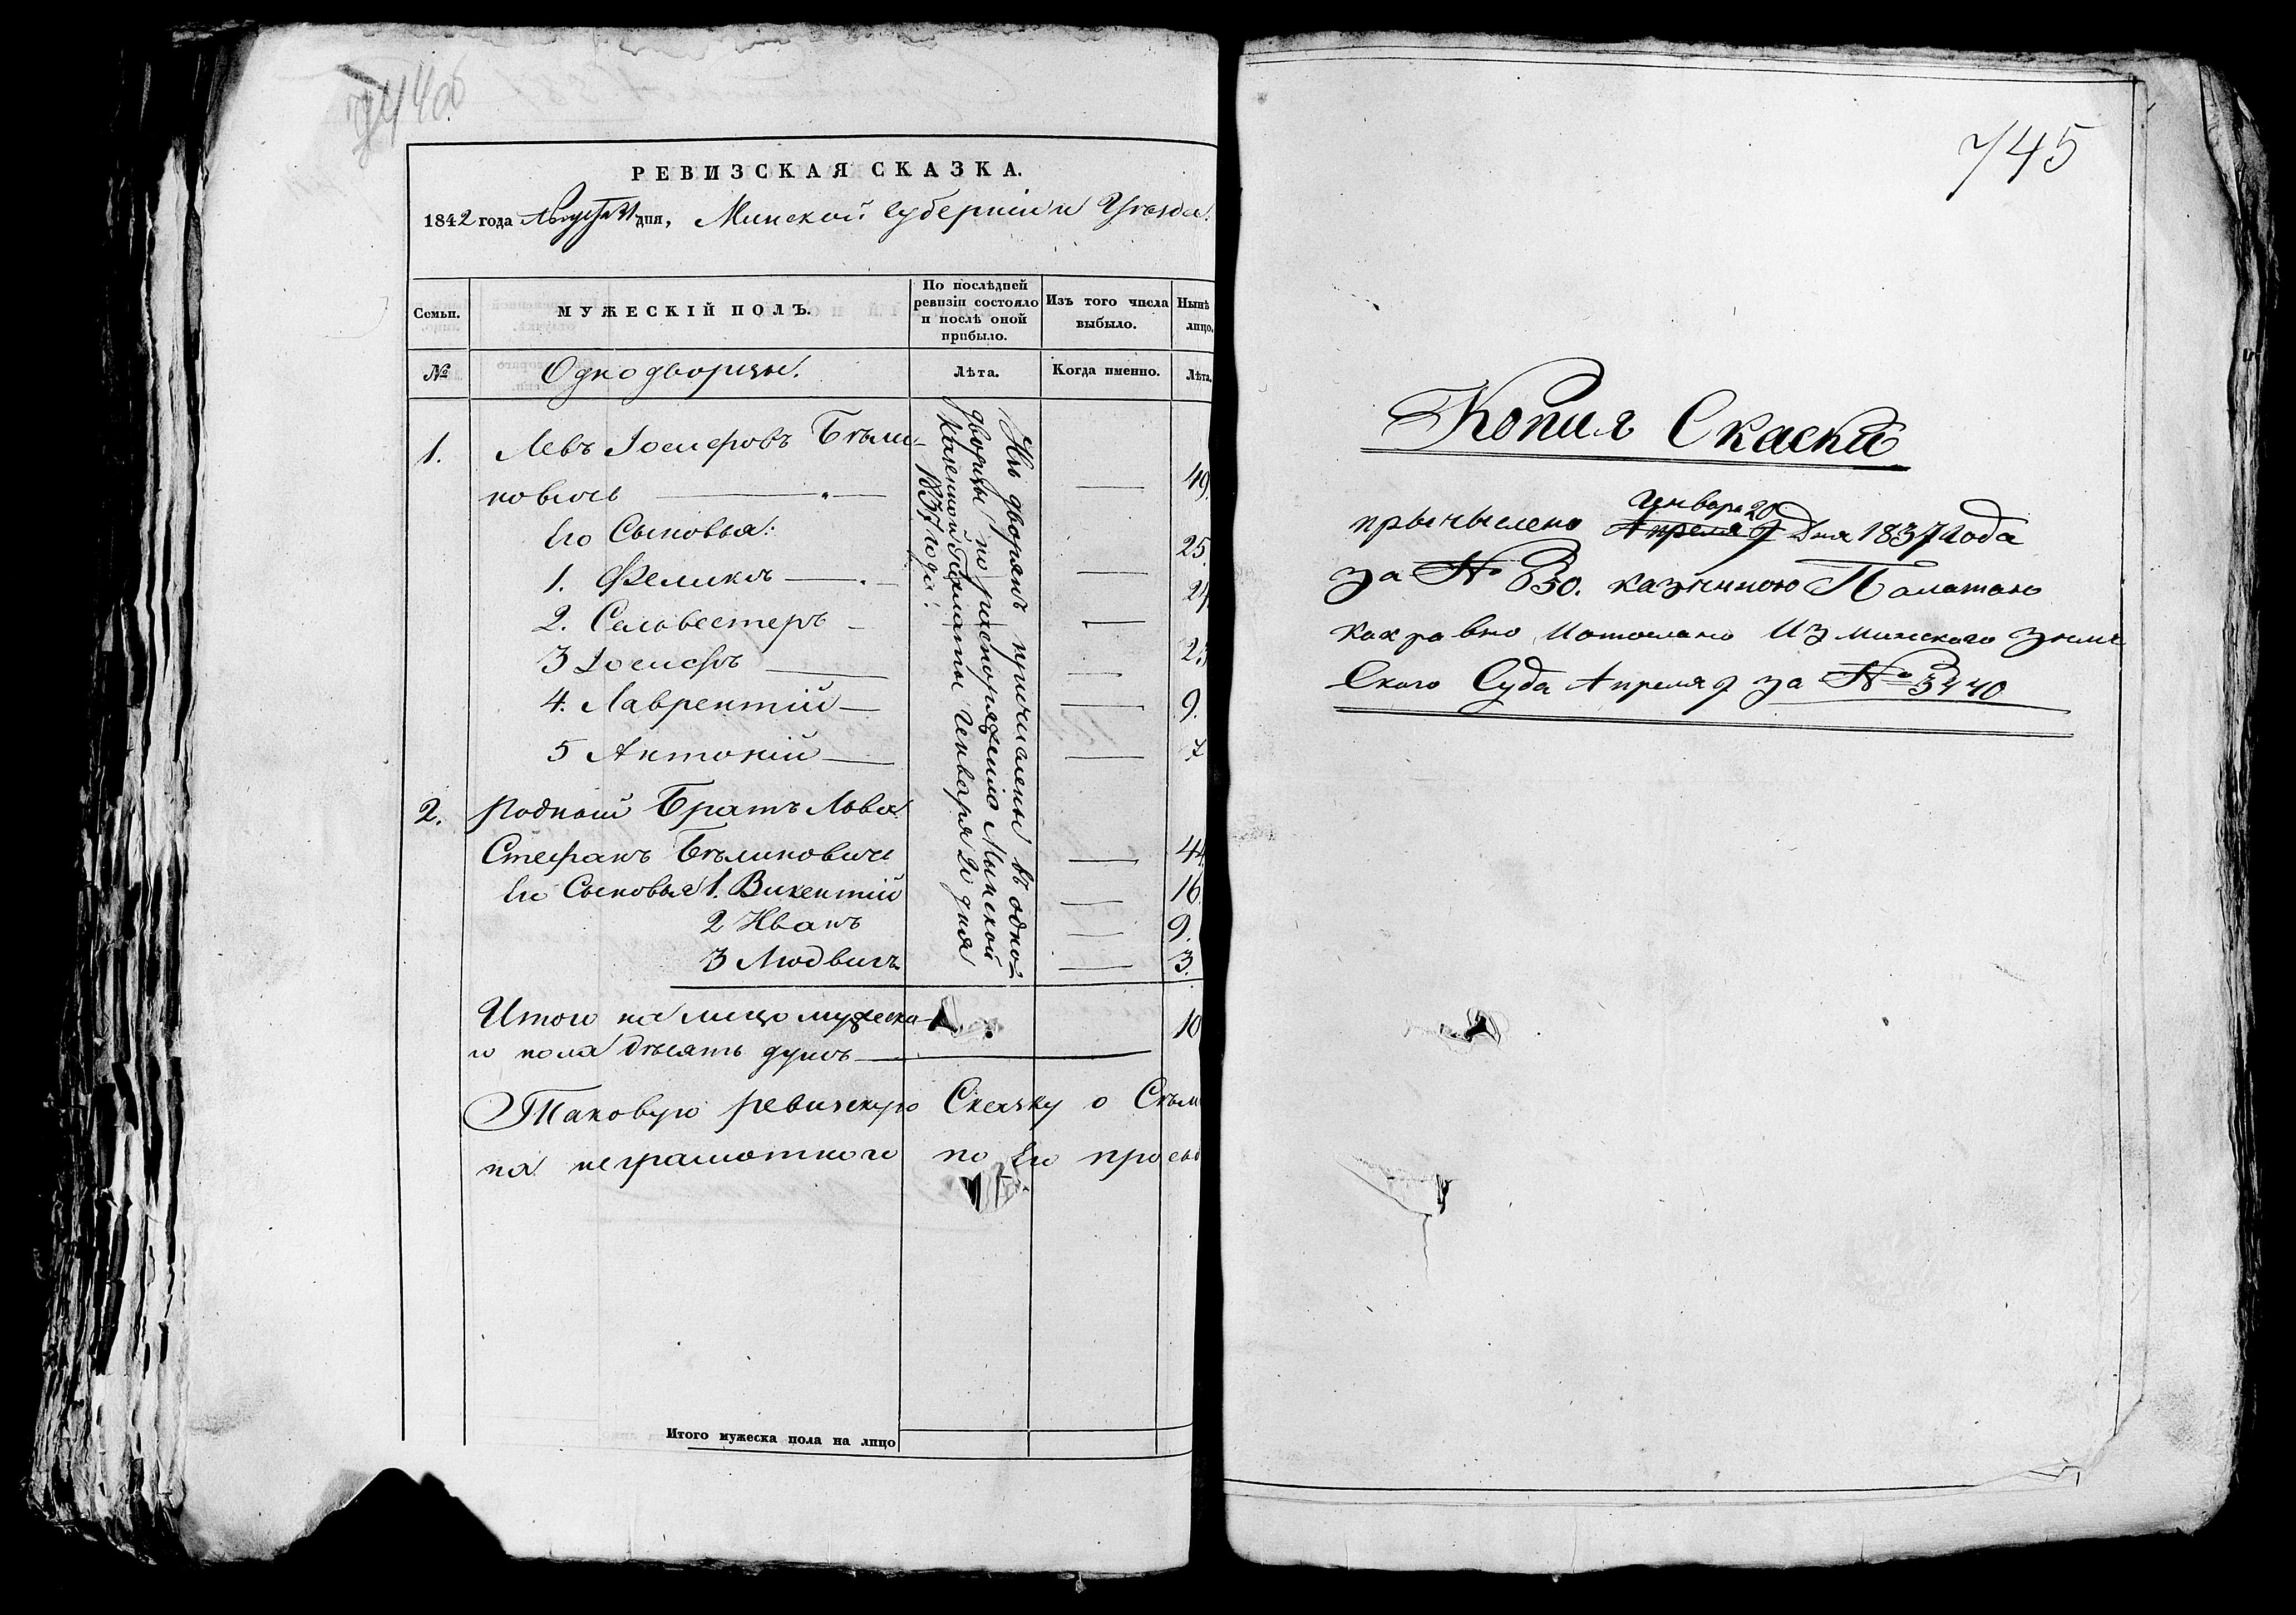 744об
РЕВИЗСКАЯ СКАЗКА.
1842 года Августа 31 дня, Минской Губерніи и Уезда.
Семьи.
МУЖЕСКІЙ ПОЛЪ.
По послѣдней
ревизіи состояло
и послѣ оной
прибыло.
Изъ того числа
выбыло.
Нынѣ
лицо.
№
Однодворцы.
Лѣта.
Когда именно.
Лѣта.
Изъ дворянъ причислены въ одно-
дворцы по распоряженію Минской
Казенной Палаты Генваря 20 дня
1837 года.
1. Левъ Іосифовъ Бѣли-
новичъ 49.
Его Сыновья:
1. Феликсъ 25.
2. Сельвестеръ
3 Іосифъ
4. Лаврентій 9.
5 Антоній 7
2. Родный Братъ Льва
Стефанъ Бѣлиновичъ 44
Его Сыновья 1. Викентій 16
2 Иванъ 9.
3 Людвигъ 3.
Итого на лицо мужеска-
го пола десять душъ 10
Таковую ревизскую Скаску о
на неграмотного по Его
Итого мужеска пола на лицо
745
Копия Скаски
Генваря 20
прычыслено Апреля 9 Дня 1837 Года
за № 850. казенною Палатою
как равно Из минского земъ
Ского Суда Апреля 9 за № 3440